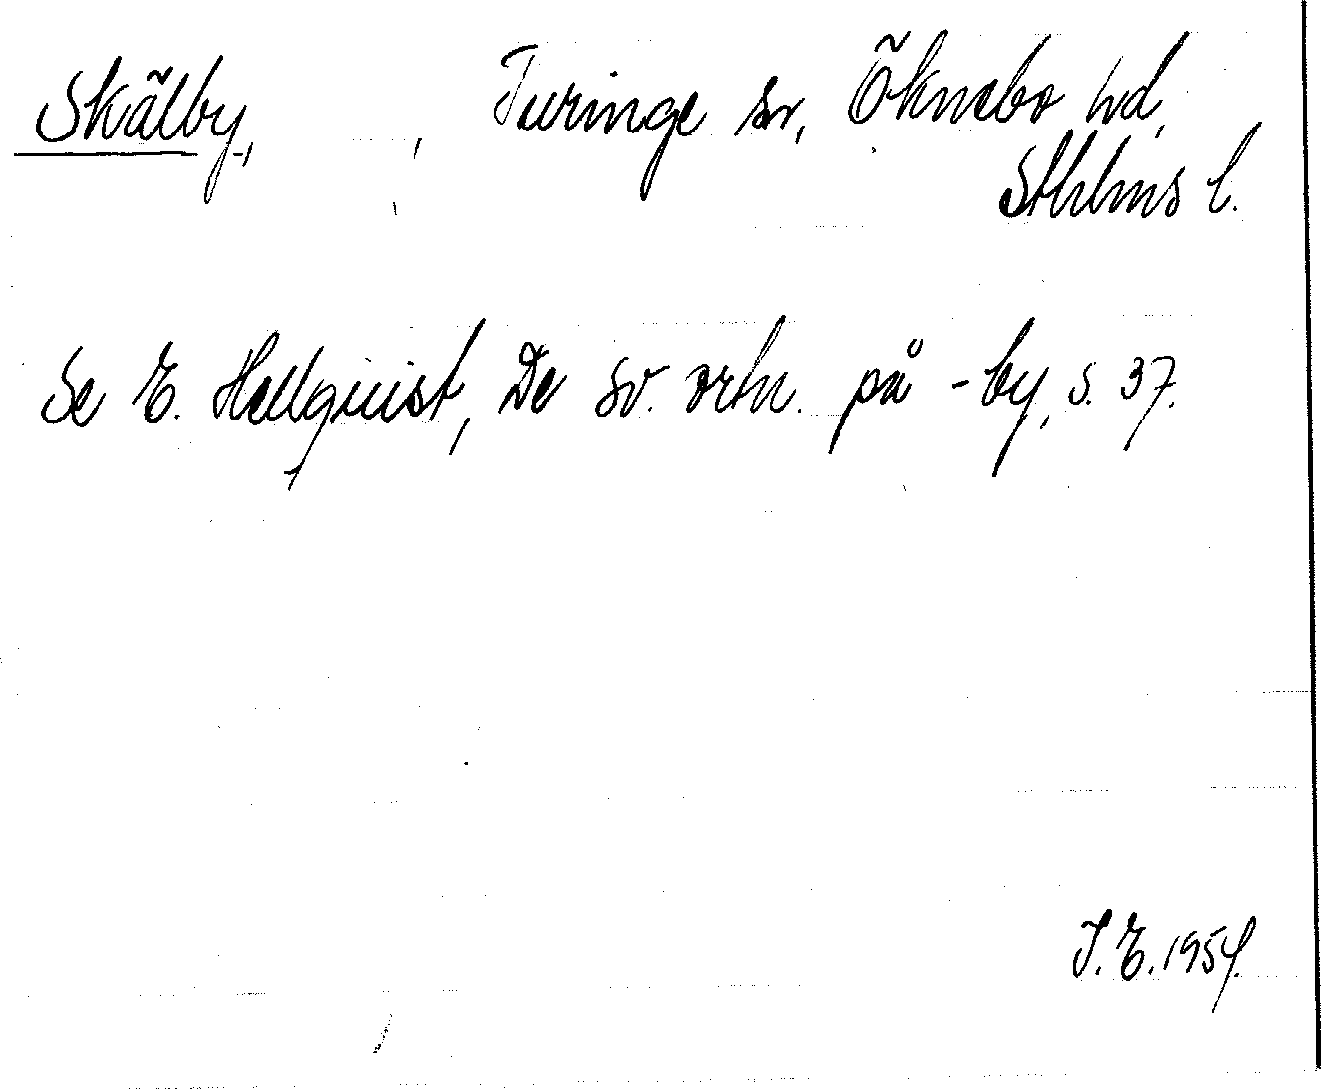 Skälby, , Turinge sn, Öknebo hd,
Sthlms l.
Se E. Hellquist, De sv. ortn. på -by, s. 37.
I. E. 1954.